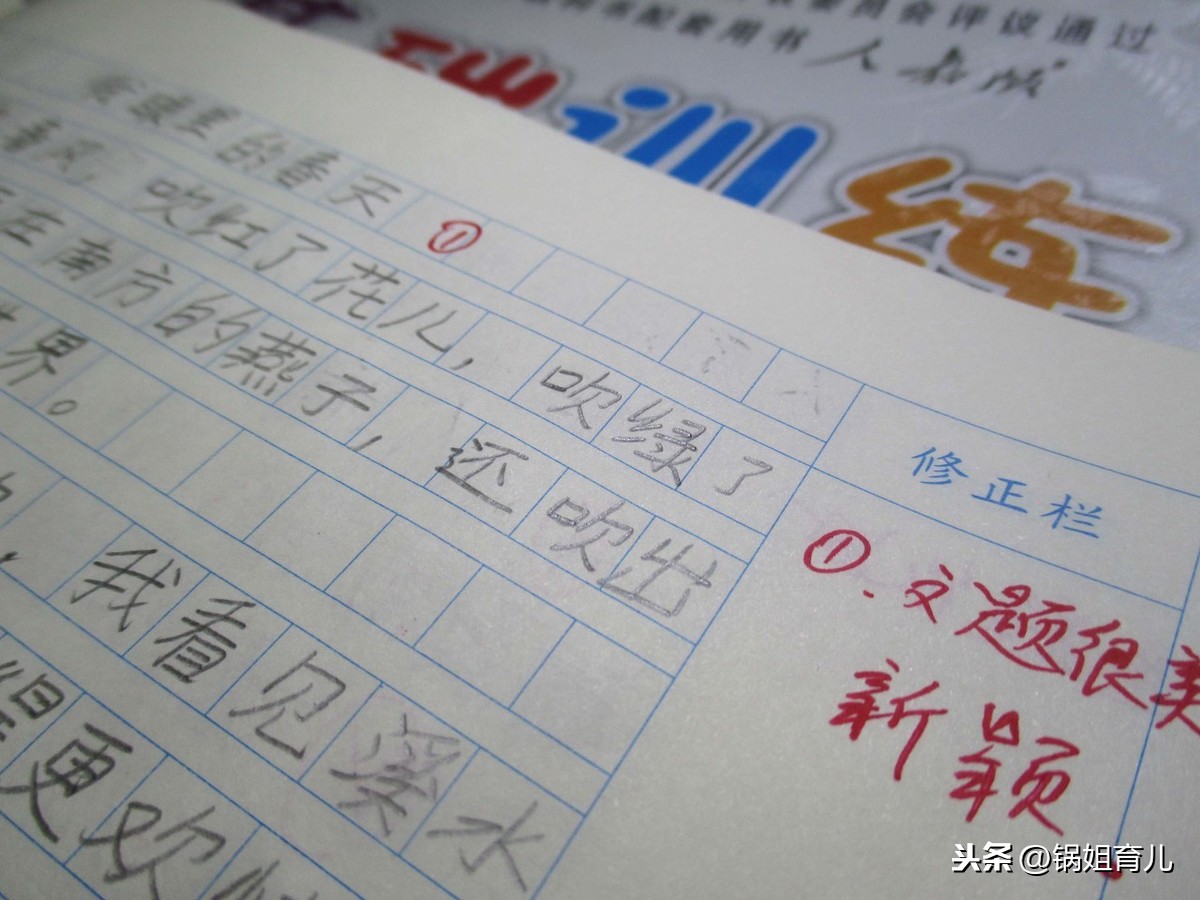 评议通过
配套用书
人
训练
眼里的春天
①
春风，吹红了花儿，吹绿了
在南方的燕子，还吹出
世界。
我看见溪水
得更欢
修正栏
①.文题很美
新颖
头条 @锅姐育儿